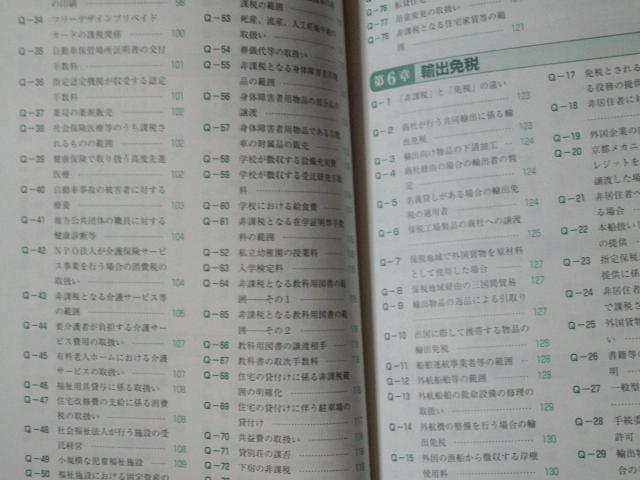 の印刷 98
Q－34 フリーデザインプリペイド
カードの課税関係 100
Q－35 自動車保管場所証明書の交付
手数料 101
Q－36 指定認定機関が収受する認定
手数料 101
Q－37 薬局の薬剤販売 102
Q－38 社会保険医療等のうち課税さ
れるものの範囲 102
Q－39 健康保険で取り扱う高度先進
医療 102
Q－40 自動車事故の被害者に対する
療養 103
Q－41 地方公共団体の職員に対する
健康診断等 104
Q－42 NPO法人が介護保険サービ
ス事業を行う場合の消費税の
取扱い 104
Q－43 非課税となる介護サービス等
の範囲 105
Q－44 要介護者が負担する介護サー
ビス費用の取扱い 107
Q－45 有料老人ホームにおける介護
サービスの取扱い 107
Q－46 福祉用具貸与に係る取扱い 108
Q－47 住宅改修費の支給に係る消費
税の取扱い 108
Q－48 社会福祉法人が行う施設の受
託経営 108
Q－49 小規模な児童福祉施設 109
Q－50 福祉施設における固定資産の
課税の範囲
Q－53 死産、流産、人工妊娠中絶の
取扱い
Q－54 葬儀代等の取扱い
Q－55 非課税となる身体障害者用物
品の範囲
Q－56 身体障害者用物品の部分品の
譲渡
Q－57 身体障害者用物品である自動
車の附属品の販売
Q－58 学校が徴収する設備充実費
Q－59 学校が徴収する受託研究手数
料
Q－60 学校における給食費
Q－61 非課税となる在学証明等手数
料の範囲
Q－62 私立幼稚園の授業料
Q－63 入学検定料
Q－64 非課税となる教科用図書の範
囲──その1
Q－65 非課税となる教科用図書の範
囲──その2
Q－66 教科用図書の譲渡相手
Q－67 教科書の取次手数料
Q－68 住宅の貸付けに係る非課税範
囲の明確化
Q－69 住宅の貸付けに伴う駐車場の
貸付け
Q－70 共益費の取扱い
Q－71 貸別荘の課否
Q－72 下宿の非課税
Q－76 転貸住宅
Q－77 用途変更の取扱い
Q－78 非課税となる住宅家賃等の範
囲 121
第6章 輸出免税
Q－1 「非課税」と「免税」の違い
123
Q－2 商社が行う共同輸出に係る輸
出免税 123
Q－3 輸出向け物品の下請加工 124
Q－4 商社経由の場合の輸出者の判
定 124
Q－5 名義貸しがある場合の輸出免
税の適用者 124
Q－6 保税工場製品の商社への譲渡
125
Q－7 保税地域で外国貨物を原材料
として使用した場合 127
Q－8 保税地域経由の三国間貿易 127
Q－9 輸出物品の返品による引取り
127
Q－10 出国に際して携帯する物品の
輸出免税 128
Q－11 船舶運航事業者等の範囲 128
Q－12 外航船舶等の範囲 128
Q－13 外航船舶の救命設備の修理の
取扱い 129
Q－14 外航機の整備を行う場合の輸
出免税 130
Q－15 外国の漁船から徴収する岸壁
使用料 130
Q－17 免税とされる
る役務の提供
Q－18 非居住者に
Q－19 外国企業の
Q－20 京都メカニ
レジットを
譲渡した場
Q－21 非居住者へ
る場合
Q－22 本船扱い
の提供
Q－23 指定保税
提供に係
Q－24 非居住者
で課税さ
Q－25 外国貨物
い
Q－26 書籍等
明
Q－27 一般型
Q－28 手続委
許可
Q－29 輸出
合の